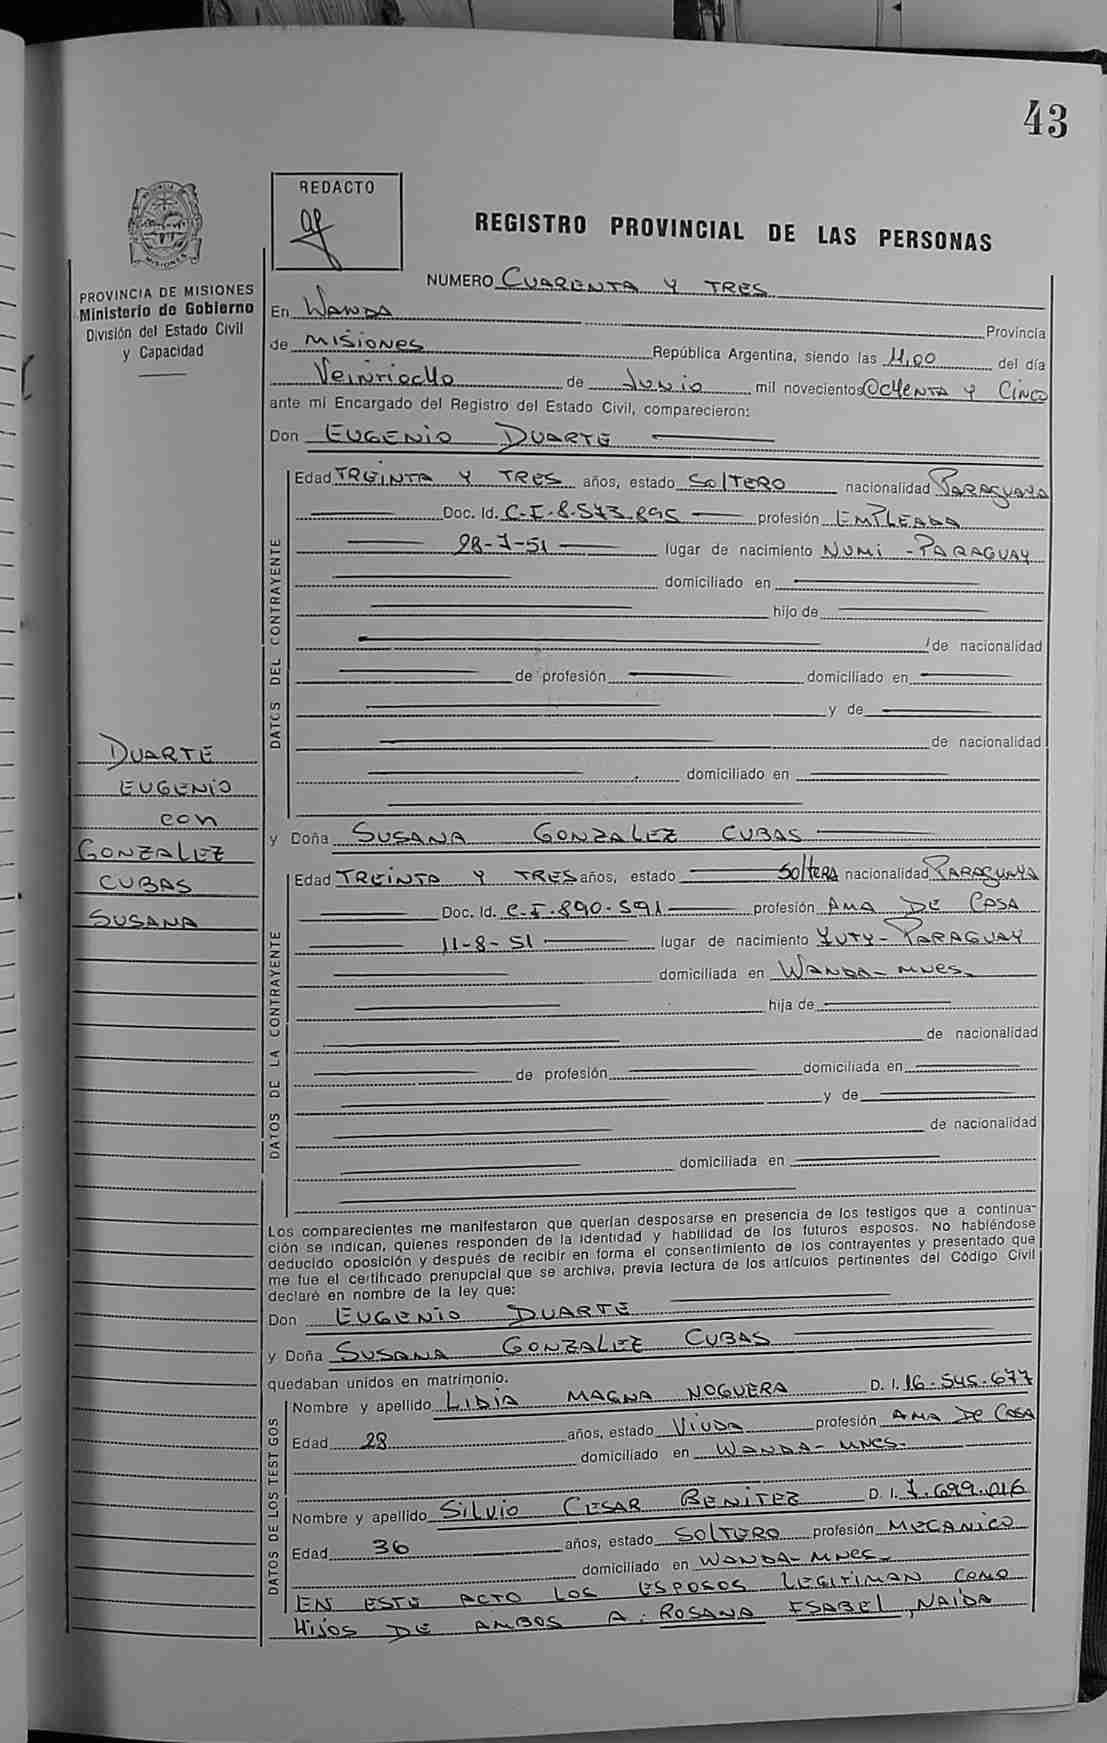 43
REDACTO
REGISTRO PROVINCIAL DE LAS PERSONAS
PROVINCIA DE MISIONES
Ministerio de Gobierno
División del Estado Civil
y Capacidad
NUMERO CUARENTA Y TRES
En WANDA Provincia
de MISIONES República Argentina, siendo las 11,00 del día
VEINTIOCHO de JUNIO mil novecientos OCHENTA Y CINCO
ante mí Encargado del Registro del Estado Civil, comparecieron:
Don EUGENIO DUARTE
DATOS DEL CONTRAYENTE
Edad TREINTA Y TRES años, estado SOLTERO nacionalidad PARAGUAYA
Doc. Id. C.I.8.573.895 profesión EMPLEADA
28-7-51 lugar de nacimiento NUMI - PARAGUAY
domiciliado en
hijo de
de nacionalidad
de profesión domiciliado en
y de
de nacionalidad
domiciliado en
DUARTE
EUGENIO
con
GONZALEZ
CUBAS
SUSANA
y Doña SUSANA GONZALEZ CUBAS
DATOS DE LA CONTRAYENTE
Edad TREINTA Y TRES años, estado SOLTERA nacionalidad PARAGUAYA
Doc. Id. C.I.890.591 profesión AMA DE CASA
11-8-51 lugar de nacimiento YUTY - PARAGUAY
domiciliada en WANDA - MNES.
hija de
de nacionalidad
de profesión domiciliada en
y de
de nacionalidad
domiciliada en
Los comparecientes me manifestaron que querían desposarse en presencia de los testigos que a continua-
ción se indican, quienes responden de la identidad y habilidad de los futuros esposos. No habiéndose
deducido oposición y después de recibir en forma el consentimiento de los contrayentes y presentado que
me fue el certificado prenupcial que se archiva, previa lectura de los artículos pertinentes del Código Civil
declaré en nombre de la ley que:
Don EUGENIO DUARTE
y Doña SUSANA GONZALEZ CUBAS
quedaban unidos en matrimonio.
DATOS DE LOS TESTIGOS
Nombre y apellido LIDIA MAGNA NOGUERA D. I. 16.545.677
Edad 28 años, estado VIUDA profesión AMA DE CASA
domiciliado en WANDA - MNES.
Nombre y apellido SILVIO CESAR BENITEZ D. I. 7.699.016
Edad 36 años, estado SOLTERO profesión MECANICO
domiciliado en WANDA - MNES.
EN ESTE ACTO LOS ESPOSOS LEGITIMAN COMO
HIJOS DE AMBOS A: ROSANA ISABEL, NAIDA